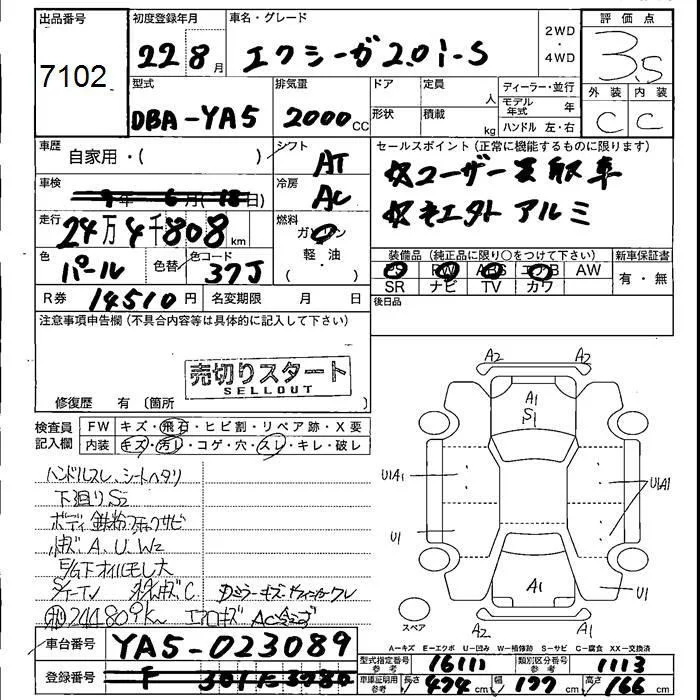 出品番号 初度登録年月 車名・グレード 2WD・4WD 評価点
7102 22 8月 エクシーガ2.0i-S 3.5
外装 内装
C C
型式 排気量 ドア 定員 人 ディーラー・並行
DBA-YA5 2000cc 形状 積載 kg モデル年式 年
ハンドル 左・右
車歴 自家用・( ) シフト AT セールスポイント(正常に機能するものに限ります)
車検 9年6月(18日) 冷房 AC ユーザー買取車
走行 24万4千808km 燃料 ガソリン アルミ
軽・油
色 パール 色替 色コード 37J 装備品(純正品に限り○をつけて下さい) 新車保証書
PS PW ABS エアB AW 有・無
SR ナビ TV カワ
R券 14510円 名変期限 月 日 後日品
注意事項申告欄(不具合内容等は具体的に記入して下さい)
売切りスタート
SELLOUT
修復歴 有 〔箇所 〕
検査員記入欄 FW キズ・飛石・ヒビ割・リペア跡・X要
内装 キズ・汚レ・コゲ・穴・スレ・キレ・破レ
ハンドルスレ、シートヘタリ
下廻りS2
ボディ鉄粉
A、U、W2
下オイルモレ大
244809km エアロキズ
A2 A2
A1
S1
U1A1 U1A1
U1
A1 U1
A2 A1
スペア
A-キズ E-エクボ U-凹み W-補修跡 S-サビ C-腐食 XX-交換済
車台番号 YA5-023089
型式指定番号 参考 16111 類別区分番号 参考 1113
登録番号
車庫証明用 参考 長さ 474cm 幅 177cm 高さ 166cm